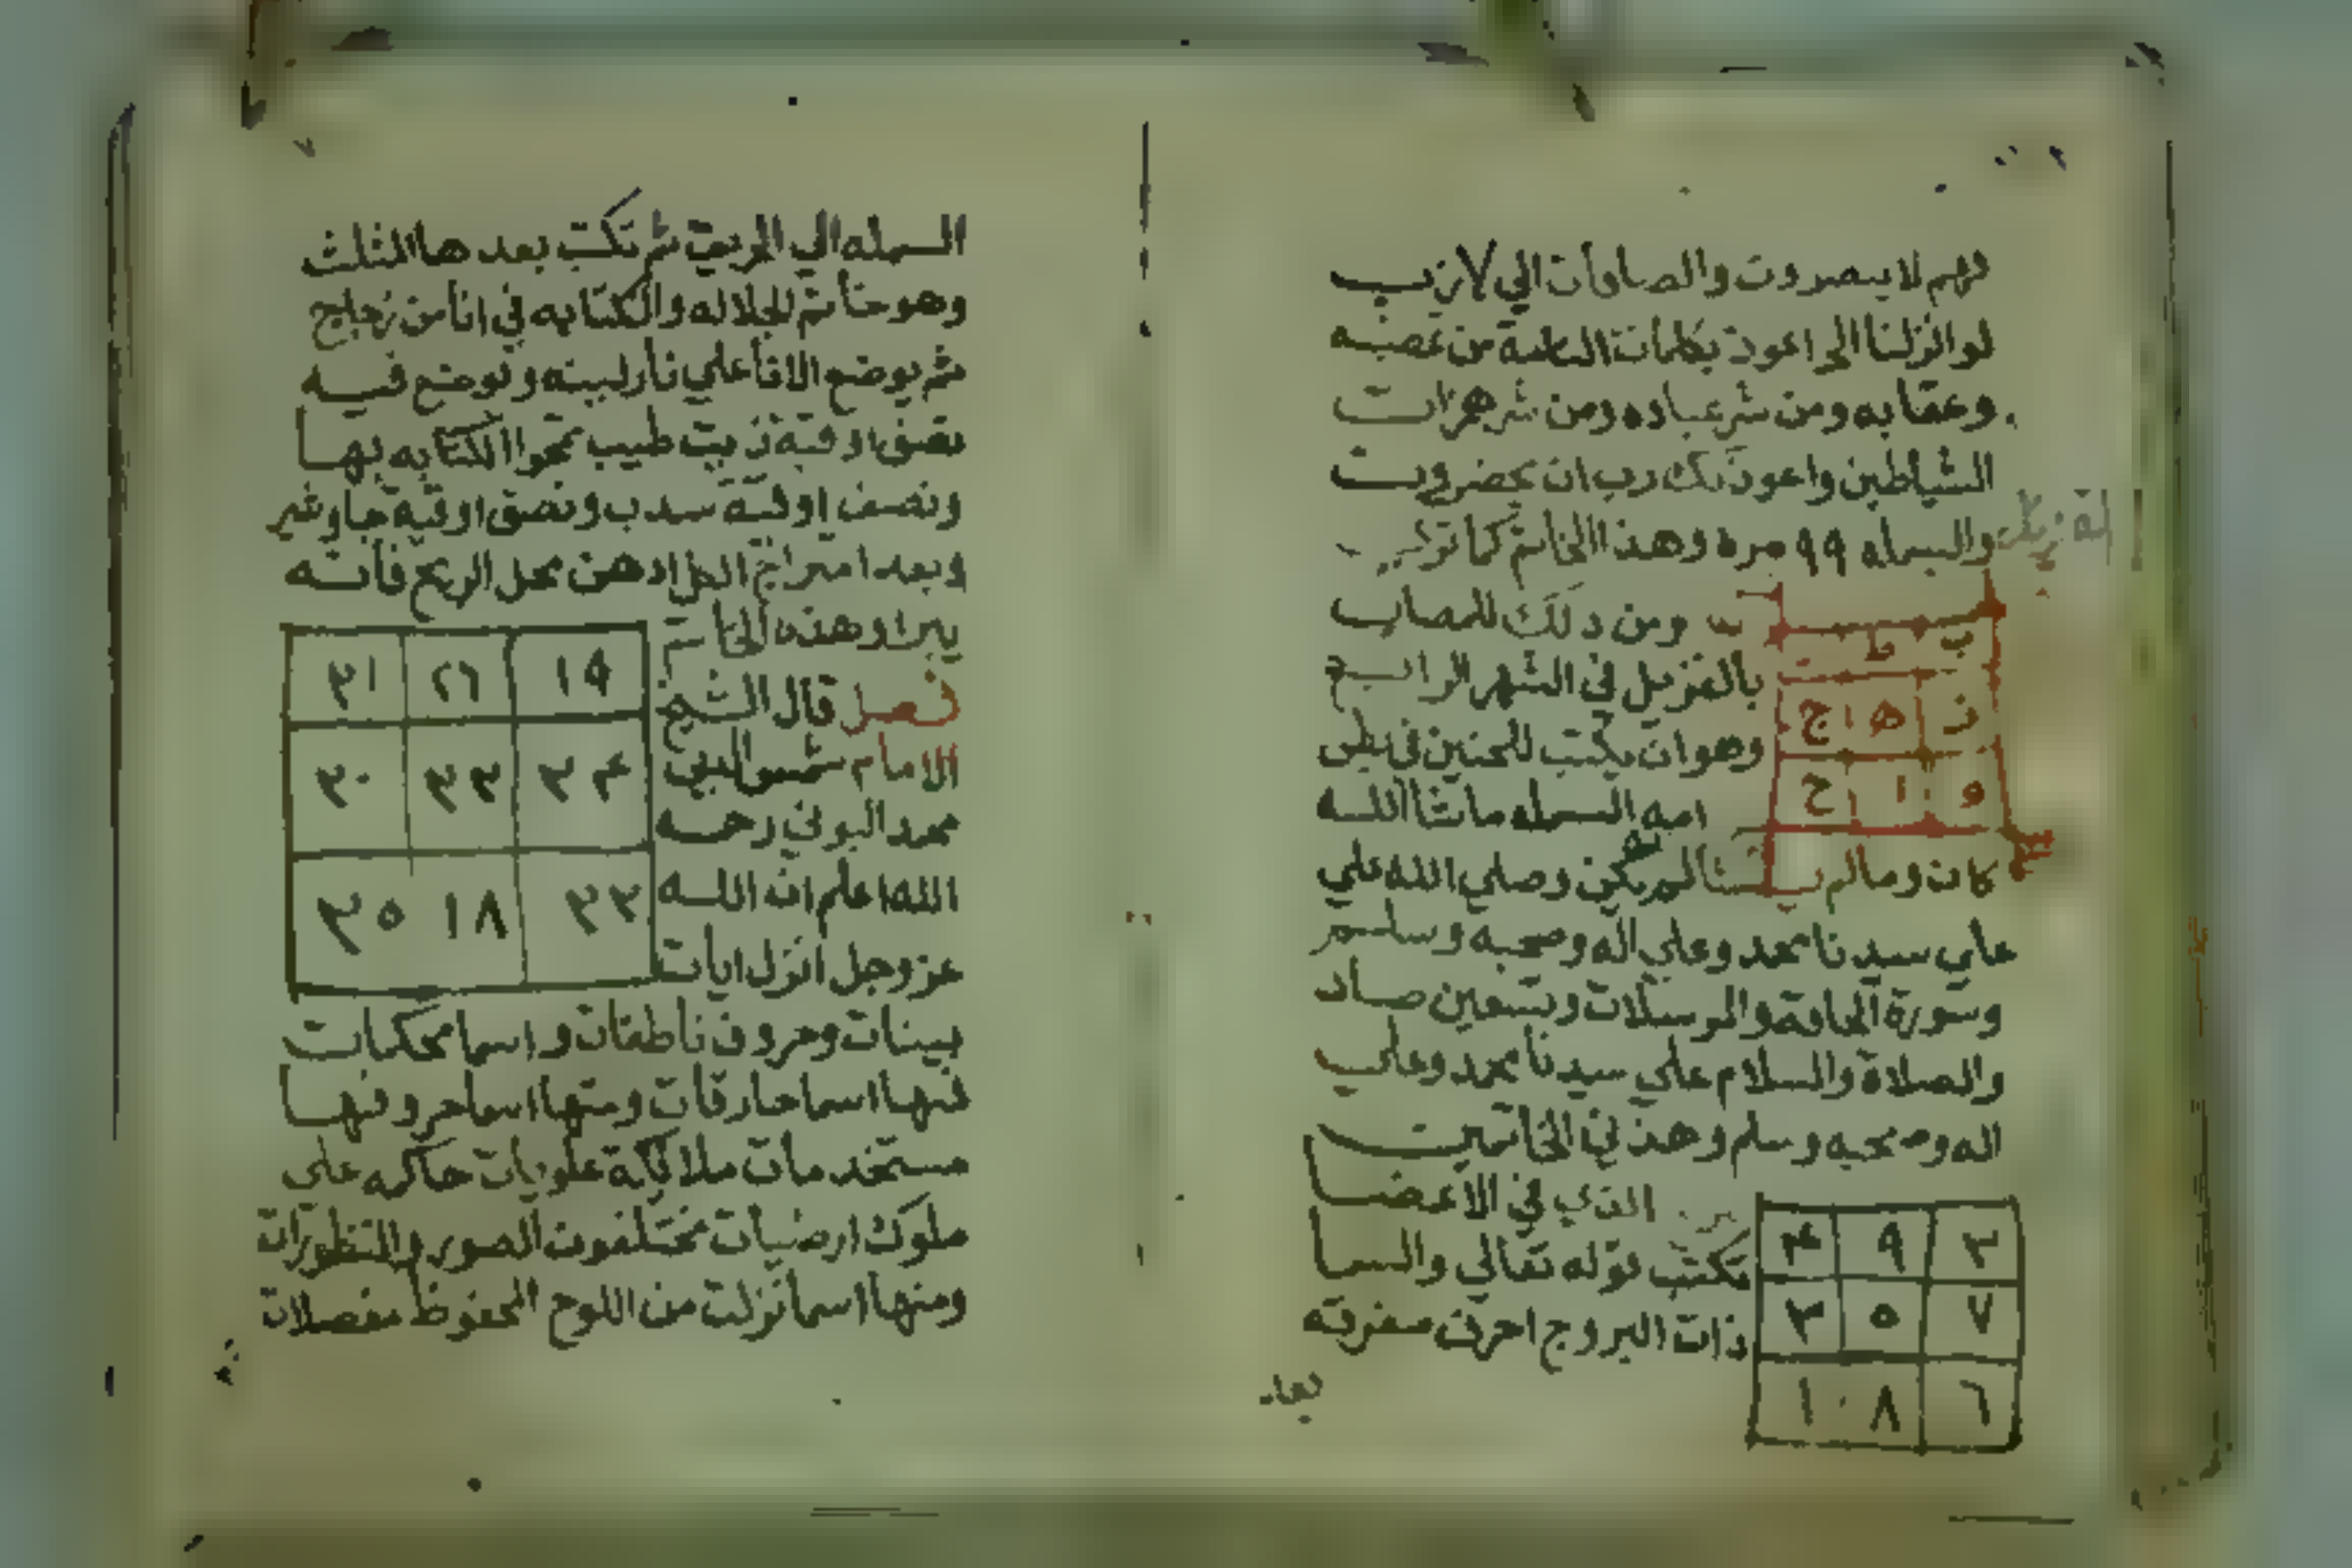 فهم لا يبصرون والصافات الي لازب
لو انزلنا الى اعوذ بكلمات التامة من غضبه
وعقابه ومن شر عباده ومن شر همزات
الشياطين واعوذ بك رب ان يحضرون
والبسمله ٩٩ مره وهذا الخاتم كما تري
ومن ذلك للمصاب
ب ط
بالغزيل في الشهر الرابع
ز ه ج
وهو ان يكتب للجنين في بطن
و ا ح
امه البسمله ماشا الله
كان وما لم يشا لم يكن وصلي الله علي
علي سيدنا محمد وعلي اله وصحبه وسلم
وسورة الحاقة والمرسلات وتسعين صاد
والصلاة والسلام علي سيدنا محمد وعلي
اله وصحبه وسلم وهذين الخاتمين
الذي في الاعضا
٤ ٩ ٢
تكتب قوله تعالي والسما
٣ ٥ ٧
ذات البروج احرف مفرقه
١ ٨ ٦
بعد
البسمله الي المربع ثم تكتب بعدها الثلث
وهو خاتم الجلاله والكتابه في انا من زجاج
ثم يوضع الانا علي نار لينه وتوضع فيه
نصف اوقية زيت طيب تمحوا الكتابه بها
ونصف اوقية سدب ونصف اوقية جاوشير
وبعد امتزاج الكل ادهن محل الريح فانه
يبرا وهذه الخاتم
٣١ ٢٦ ١٩
فصل قال الشيخ
الامام شمس الدين
٣٠ ٣٣ ٣٤
محمد البوني رحمه
الله اعلم ان الله
٣٥ ١٨ ٢٣
عز وجل انزل ايات
بينات وحروف ناطقات واسما محكمات
فمنها اسما حارقات ومنها اسما حروفها
مستخدمات ملائكة علويات حاكمه علي
ملوك ارضيات مختلفون الصور والتطورات
ومنها اسما نزلت من اللوح المحفوظ مفصلات